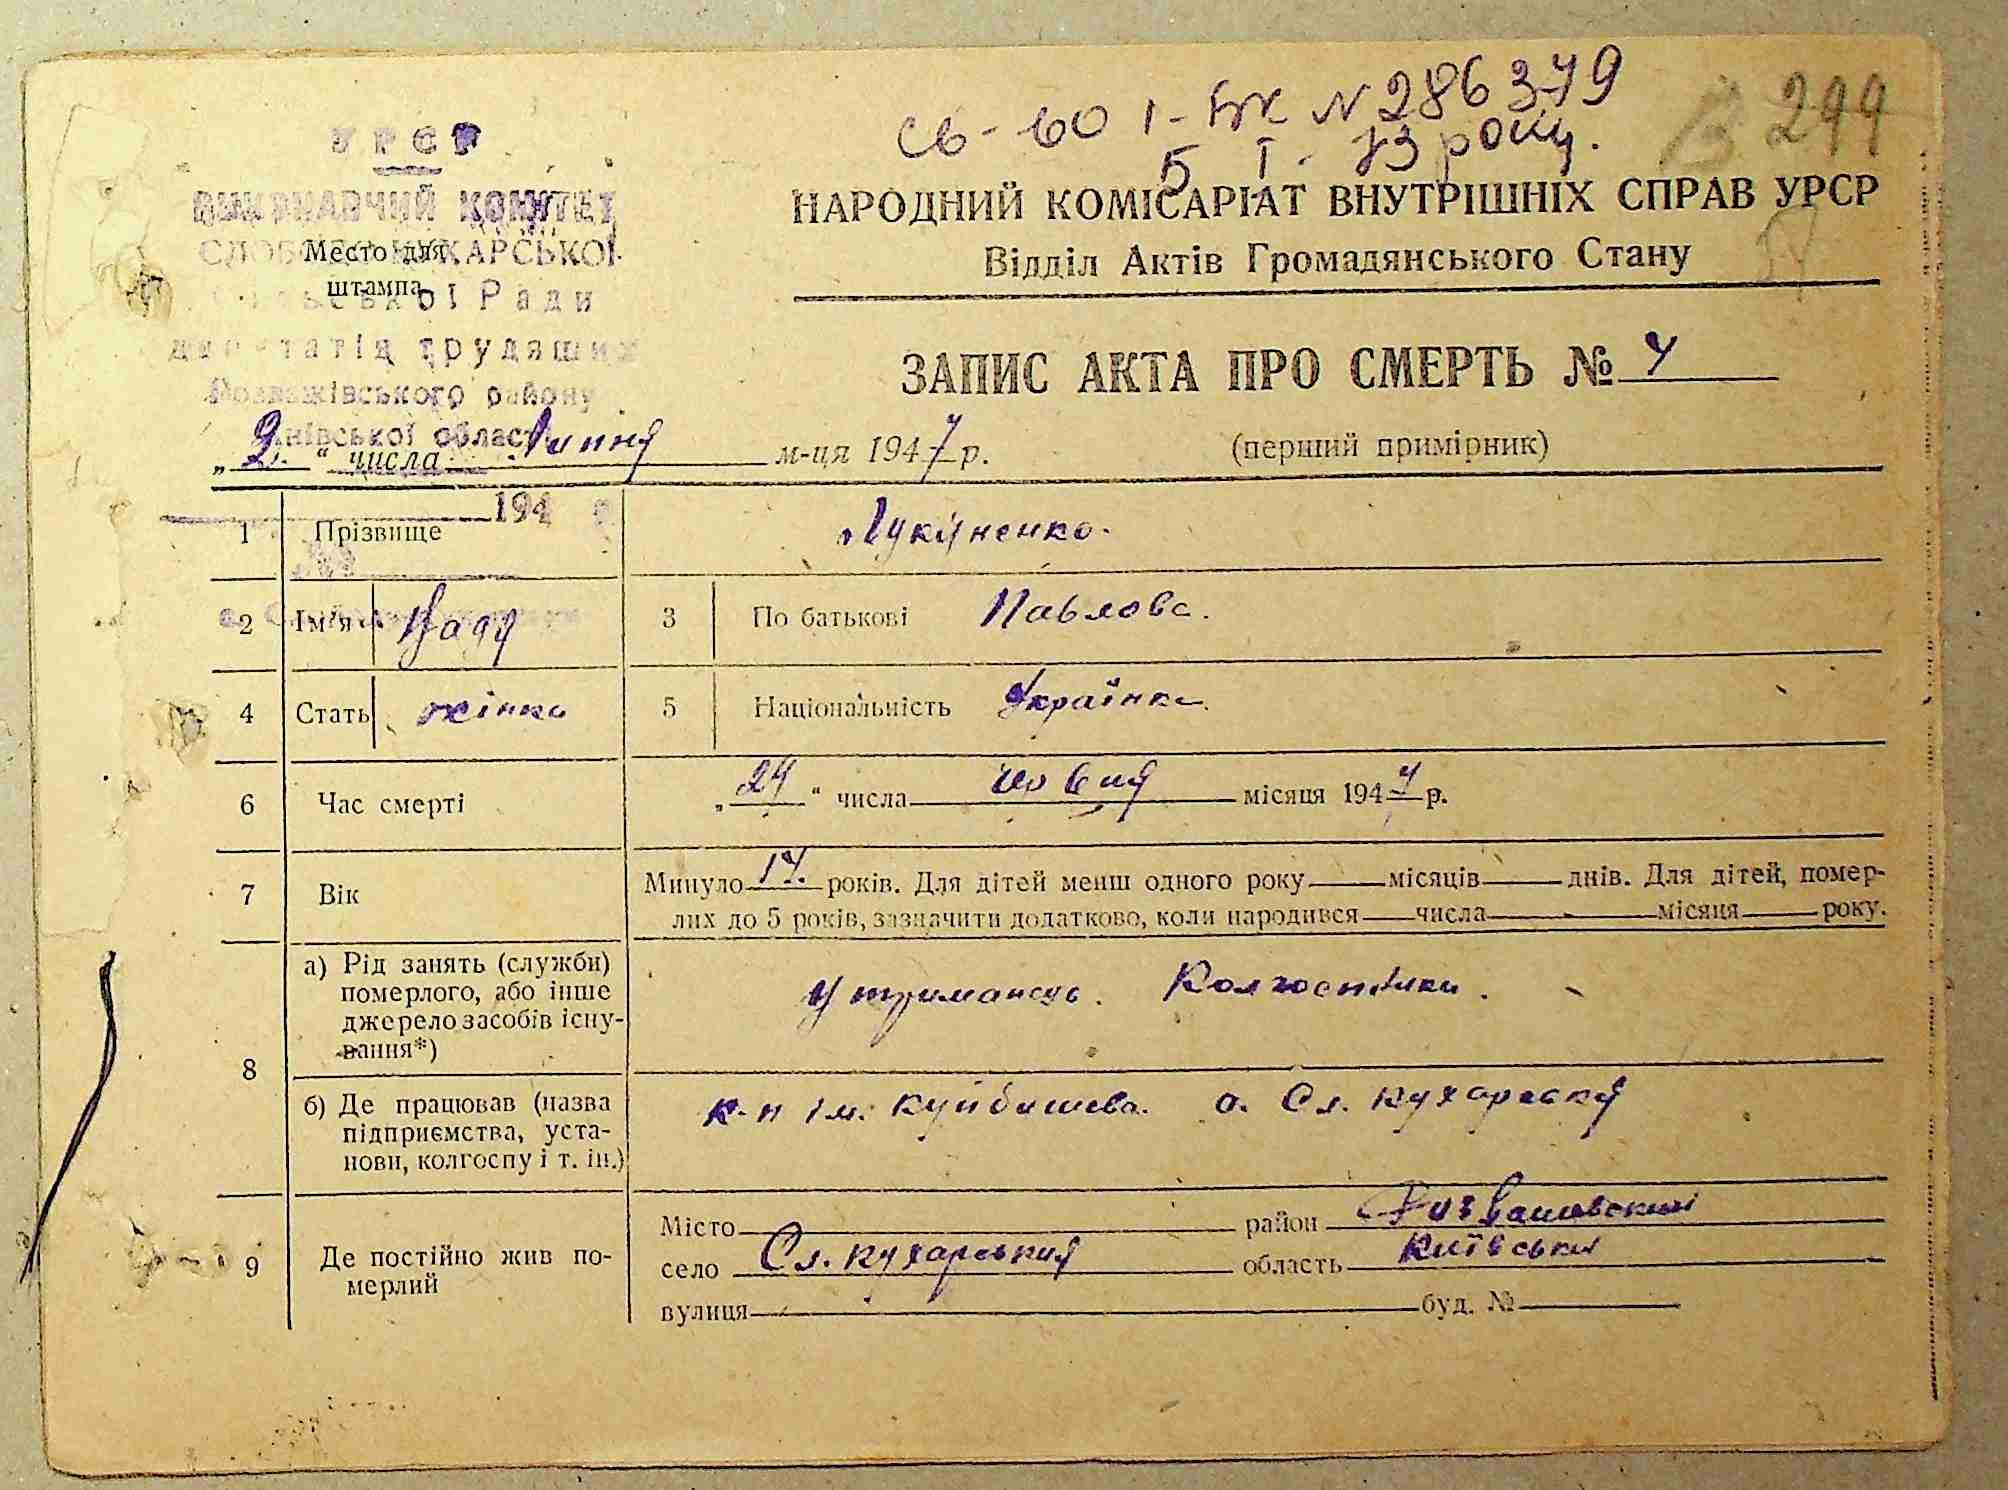 Св-во І-БК № 286379
5 І - 73 року.
299
УРСР
ВИКОНАВЧИЙ КОМІТЕТ
КУХАРСЬКОЇ
Место для
штампа
Ради
трудящих
району
області
НАРОДНИЙ КОМІСАРІАТ ВНУТРІШНІХ СПРАВ УРСР
Відділ Актів Громадянського Стану
ЗАПИС АКТА ПРО СМЕРТЬ № 7
„2.“ числа Липня м-ця 1947 р. (перший примірник)
194
1 Прізвище Лукяненко.
2 Ім'я Надя 3 По батькові Павловс.
4 Стать жінка 5 Національність Українка.
6 Час смерті „ “ числа місяця 1947 р.
7 Вік Минуло 17. років. Для дітей менш одного року місяців днів. Для дітей, помер-
лих до 5 років, зазначити додатково, коли народився числа місяця року.
8 а) Рід занять (служби)
померлого, або інше
джерело засобів існу-
вання*)
Утриманець. Колгоспники.
б) Де працював (назва
підприємства, уста-
нови, колгоспу і т. ін.)
к-п ім. Куйбишева. Сл. Кухарська
9 Де постійно жив по-
мерлий
Місто район
село Сл. Кухарська область Київська
вулиця буд. №